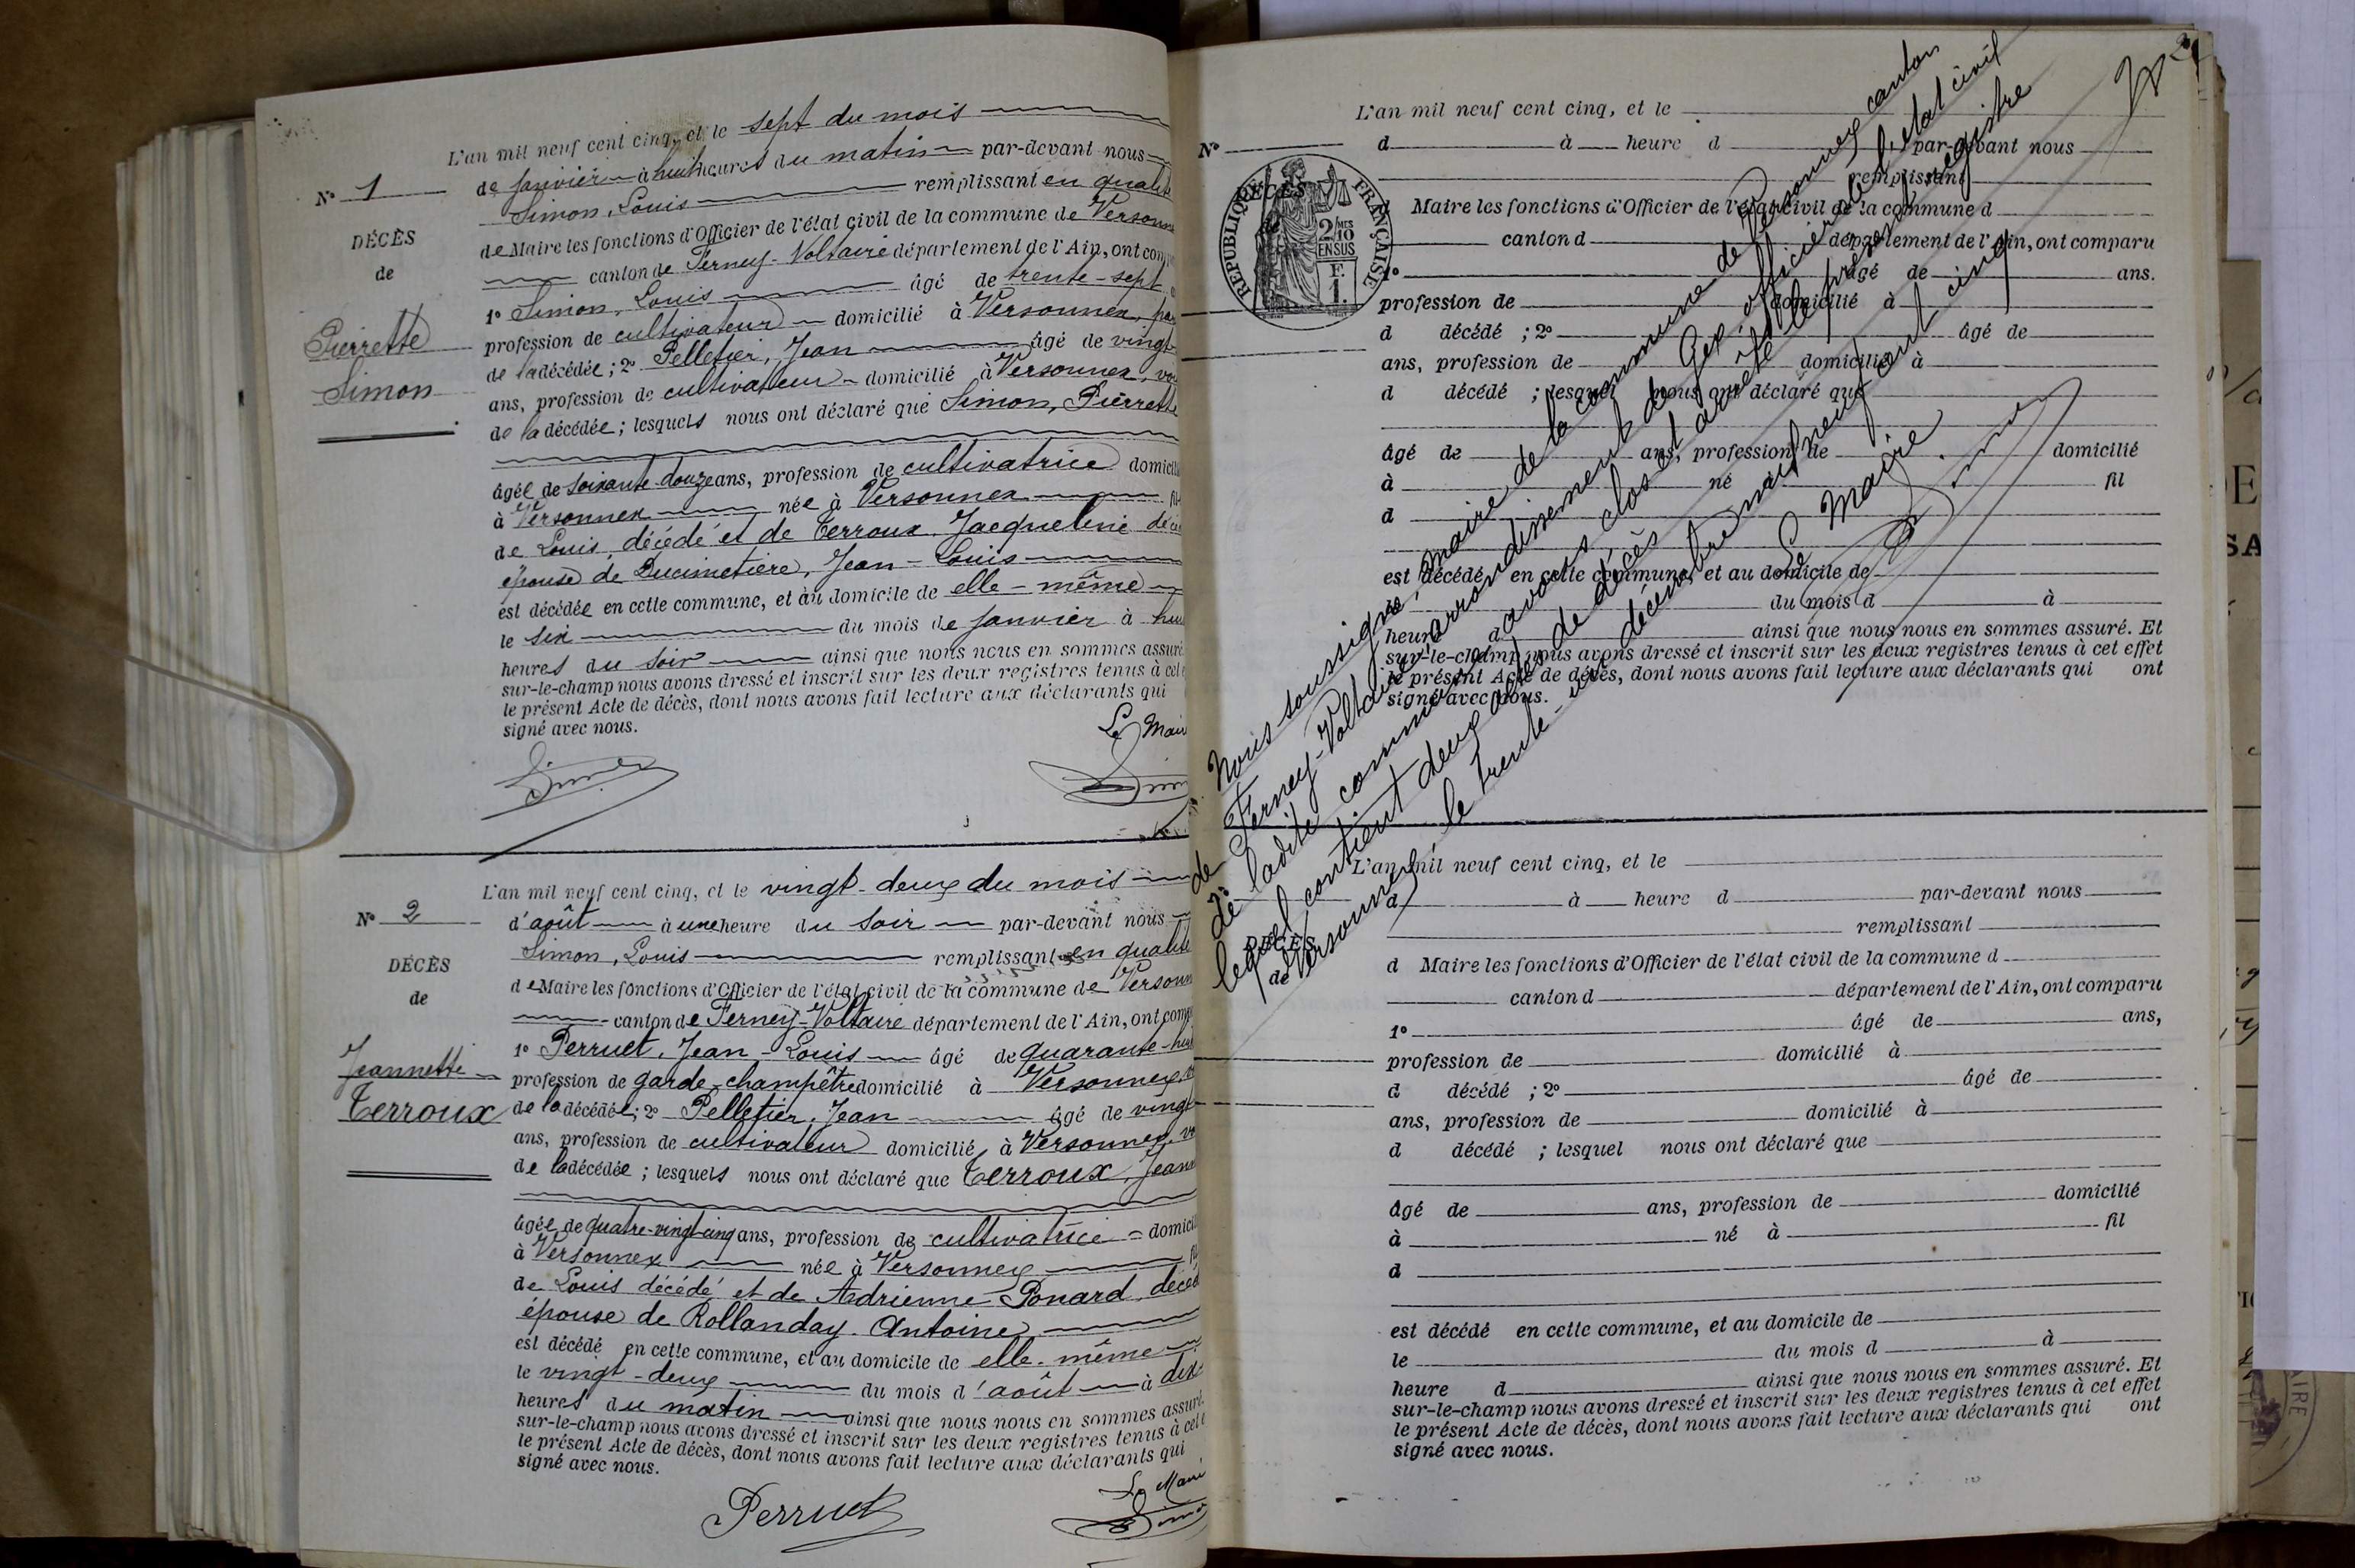 L'an mil neuf cent cinq, et le sept du mois
N° 1
de janvier à huit heures du matin par-devant nous
Simon, Louis remplissant en qualité
DÉCÈS
de Maire les fonctions d'Officier de l'état civil de la commune de Versonn
de
canton de Ferney-Voltaire département de l'Ain, ont comp
1° Simon, Louis âgé de trente-sept
Pierrette
profession de cultivateur domicilié à Versonnex, pa
Simon
de la décédée ; 2° Pelletier, Jean âgé de vingt-
ans, profession de cultivateur domicilié à Versonnex, vo
de la décédée ; lesquels nous ont déclaré que Simon, Pierrette
âgée de soixante-douze ans, profession de cultivatrice domicil
à Versonnex née à Versonnex fil
de Louis, décédé et de Terroux Jacqueline décé
épouse de Ducimetière, Jean-Louis
est décédée en cette commune, et au domicile de elle-même
le six du mois de janvier à hui
heures du soir ainsi que nous nous en sommes assuré
sur-le-champ nous avons dressé et inscrit sur les deux registres tenus à cet e
le présent Acte de décès, dont nous avons fait lecture aux déclarants qui
signé avec nous.
Le Mair
Simon
Sim
L'an mil neuf cent cinq, et le vingt-deux du mois
N° 2
d'août à une heure du soir par-devant nous
Simon, Louis remplissant en qualité
DÉCÈS
de Maire les fonctions d'Officier de l'état civil de la commune de Versonn
de
canton de Ferney-Voltaire département de l'Ain, ont comp
1° Perruet, Jean-Louis âgé de quarante-hui
Jeannette
profession de garde-champêtre domicilié à Versonnex, v
Terroux
de la décédée ; 2° Pelletier, Jean âgé de vingt-
ans, profession de cultivateur domicilié à Versonnex, vo
de la décédée ; lesquels nous ont déclaré que Terroux, Jeann
âgée de quatre-vingt-cinq ans, profession de cultivatrice domicil
à Versonnex née à Versonnex fil
de Louis décédé et de Adrienne Ponard, décéd
épouse de Rollanday Antoine
est décédé en cette commune, et au domicile de elle-même
le vingt-deux du mois d'août à dix
heures du matin ainsi que nous nous en sommes assuré.
sur-le-champ nous avons dressé et inscrit sur les deux registres tenus à cet e
le présent Acte de décès, dont nous avons fait lecture aux déclarants qui
signé avec nous.
Le Maire
Perruet
Simo
2
L'an mil neuf cent cinq, et le
N°
d à heure d par-devant nous
remplissant
DÉCÈS
de
RÉPUBLIQUE FRANÇAISE
2/10 MES
EN SUS
F. 1.
d Maire les fonctions d'Officier de l'état civil de la commune d
canton d département de l'Ain, ont comparu
1° âgé de ans.
profession de domicilié à
d décédé ; 2° âgé de
ans, profession de domicilié à
d décédé ; lesquel nous ont déclaré que
âgé de ans, profession de domicilié
à né à fil
d
est décédé en cette commune, et au domicile de
le du mois d à
heure d ainsi que nous nous en sommes assuré. Et
sur-le-champ nous avons dressé et inscrit sur les deux registres tenus à cet effet
le présent Acte de décès, dont nous avons fait lecture aux déclarants qui ont
signé avec nous.
Nous soussigné, maire de la commune de Versonnex canton
de Ferney-Voltaire arrondissement de Gex, officier de l'état civil
de ladite commune avons clos et arrêté le présent registre
lequel contient deux actes de décès
Versonnex, le trente-un décembre mil neuf cent cinq
Le Maire
Simon
L'an mil neuf cent cinq, et le
N°
d à heure d par-devant nous
remplissant
DÉCÈS
d Maire les fonctions d'Officier de l'état civil de la commune d
de
canton d département de l'Ain, ont comparu
1° âgé de ans,
profession de domicilié à
d décédé ; 2° âgé de
ans, profession de domicilié à
d décédé ; lesquel nous ont déclaré que
âgé de ans, profession de domicilié
à né à fil
d
est décédé en cette commune, et au domicile de
le du mois d à
heure d ainsi que nous nous en sommes assuré. Et
sur-le-champ nous avons dressé et inscrit sur les deux registres tenus à cet effet
le présent Acte de décès, dont nous avons fait lecture aux déclarants qui ont
signé avec nous.